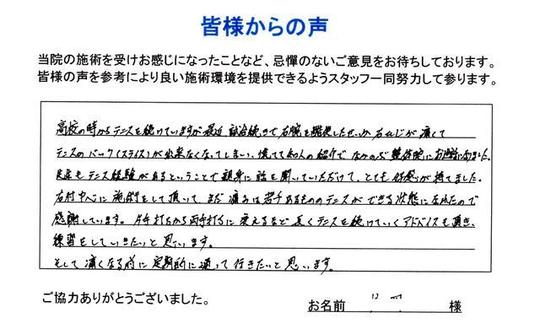 皆様からの声
当院の施術を受けお感じになったことなど、忌憚のないご意見をお待ちしております。
皆様の声を参考により良い施術環境を提供できるようスタッフ一同努力して参ります。
高校の時からテニスを続けていますが最近 試合続きで右腕を酷使したせいか右ひじが痛くて
テニスのバック(スライス)が出来なくなってしまい、慌てて知人の紹介で なかのざ整骨院にお世話になりました。
先生もテニス経験があるということで親身に話を聞いていただけて、とても 好感が持てました。
右肘中心に施術をして頂って まだ痛みは若干あるもののテニスができる状態になれたので
感謝しています。片手打ちから両手打ちに変えるなど 長くテニスを続けていくアドバイスも頂き、
練習をしていきたいと思います。
そして痛くなる前に定期的に通って行きたいと思います。
ご協力ありがとうございました。
お名前 様